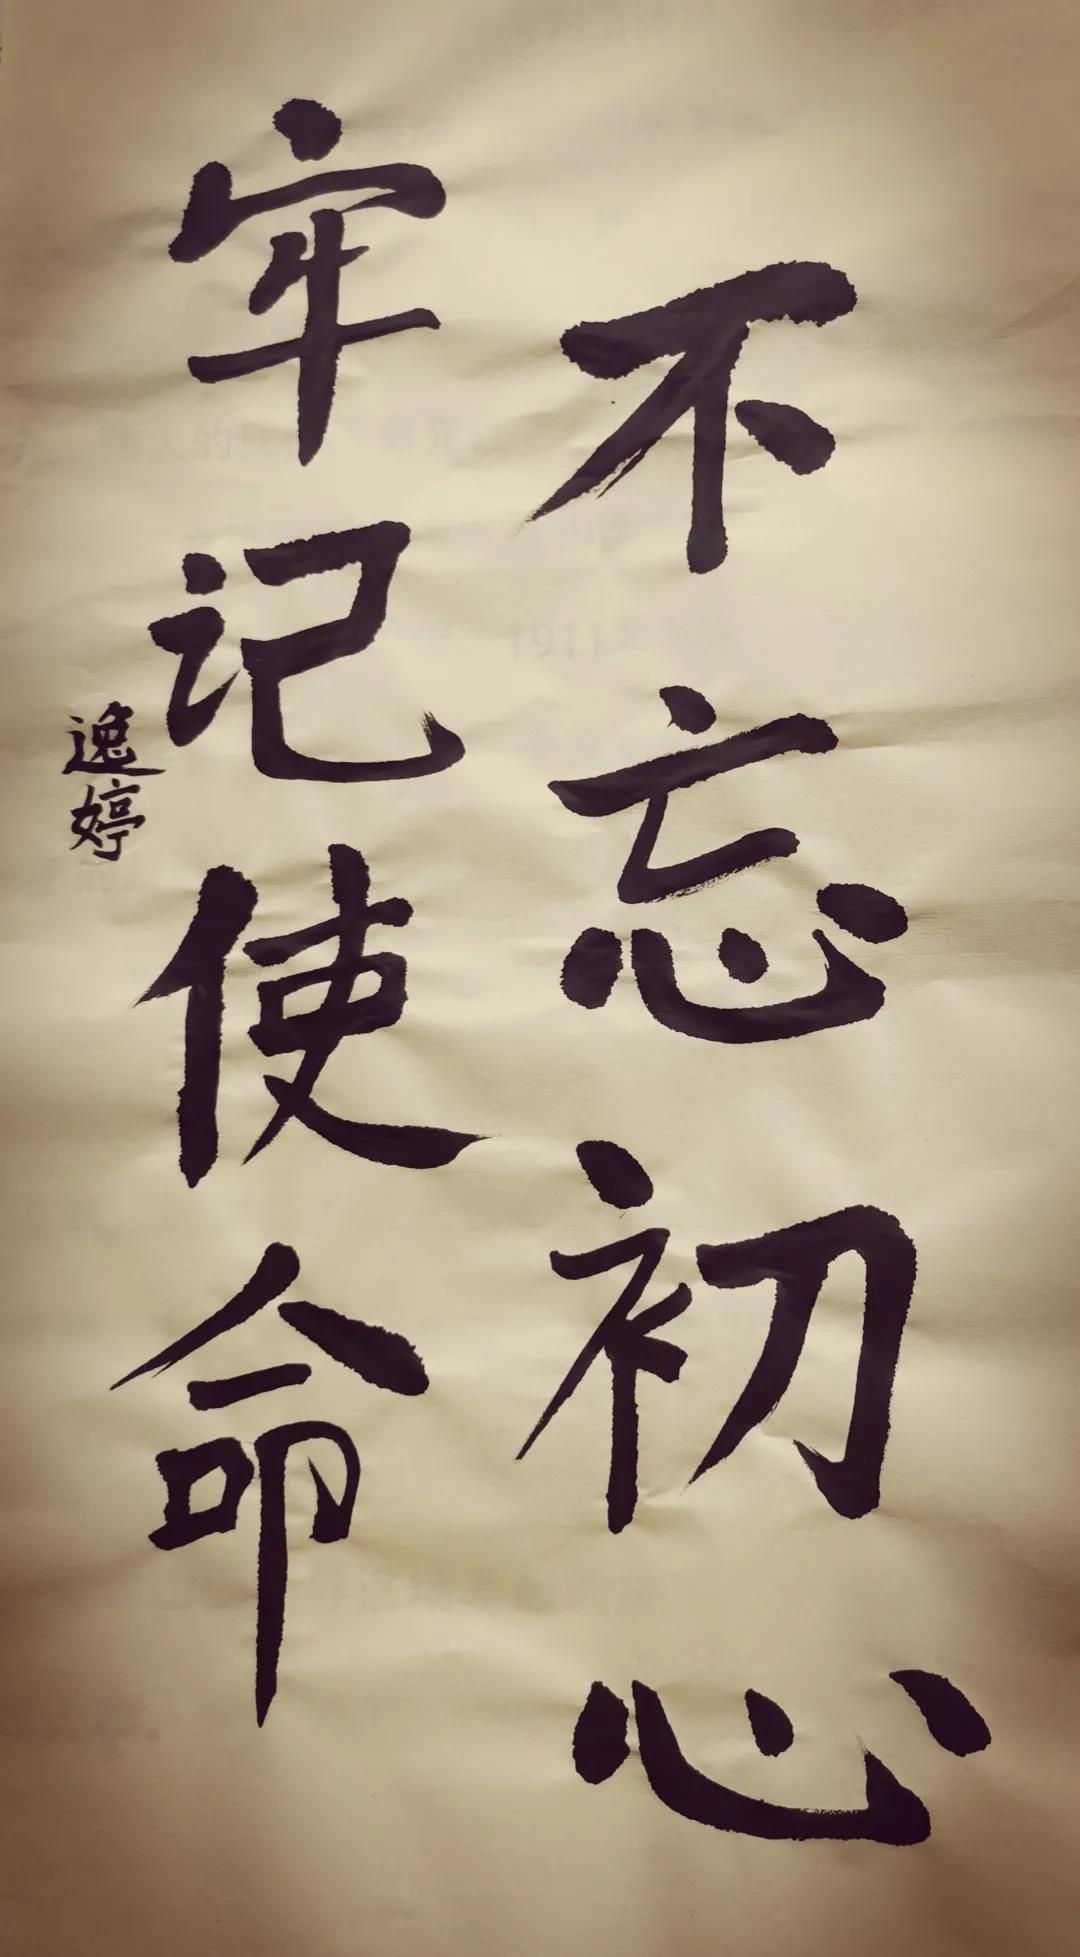 不忘初心
牢记使命
逸婷